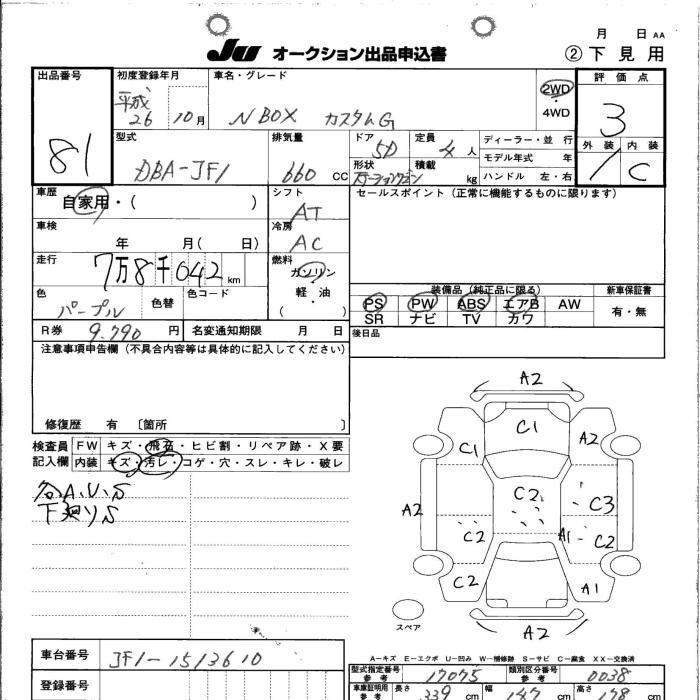 月 日 AA
JU オークション出品申込書 ② 下見用
出品番号 81
初度登録年月 平成 26 10月
車名・グレード N BOX カスタムG
2WD・4WD
評価点 3
外装 内装 C
型式 DBA-JF1
排気量 660 CC
ドア 5D
形状 ステーションワゴン
定員 4人
積載 kg
ディーラー・並行
モデル年式 年
ハンドル 左・右
車歴 自家用・( )
シフト AT
セールスポイント (正常に機能するものに限ります)
車検 年 月( 日)
冷房 AC
走行 7万8千042km
燃料 ガソリン・軽油・( )
色 パープル 色替
色コード
装備品 (純正品に限る)
PS PW ABS エアB AW
SR ナビ TV カワ
新車保証書 有・無
R券 9.790 円
名変通知期限 月 日
後日品
注意事項申告欄(不具合内容等は具体的に記入してください)
修復歴 有 〔箇所 〕
検査員記入欄
FW キズ・飛石・ヒビ割・リペア跡・X要
内装 キズ・汚レ・コゲ・穴・スレ・キレ・破レ
各A.U.S
下廻りS
A2
C1
C1
A2
A2
C2
C3
C2
A1
C2
C2
A1
A2
スペア
A-キズ E-エクボ U-凹み W-補修跡 S-サビ C-腐食 XX-交換済
車台番号 JF1-1513610
型式指定番号 参考 17075
類別区分番号 参考 0038
登録番号
車庫証明用 参考
長さ 339 cm
幅 147 cm
高さ 178 cm